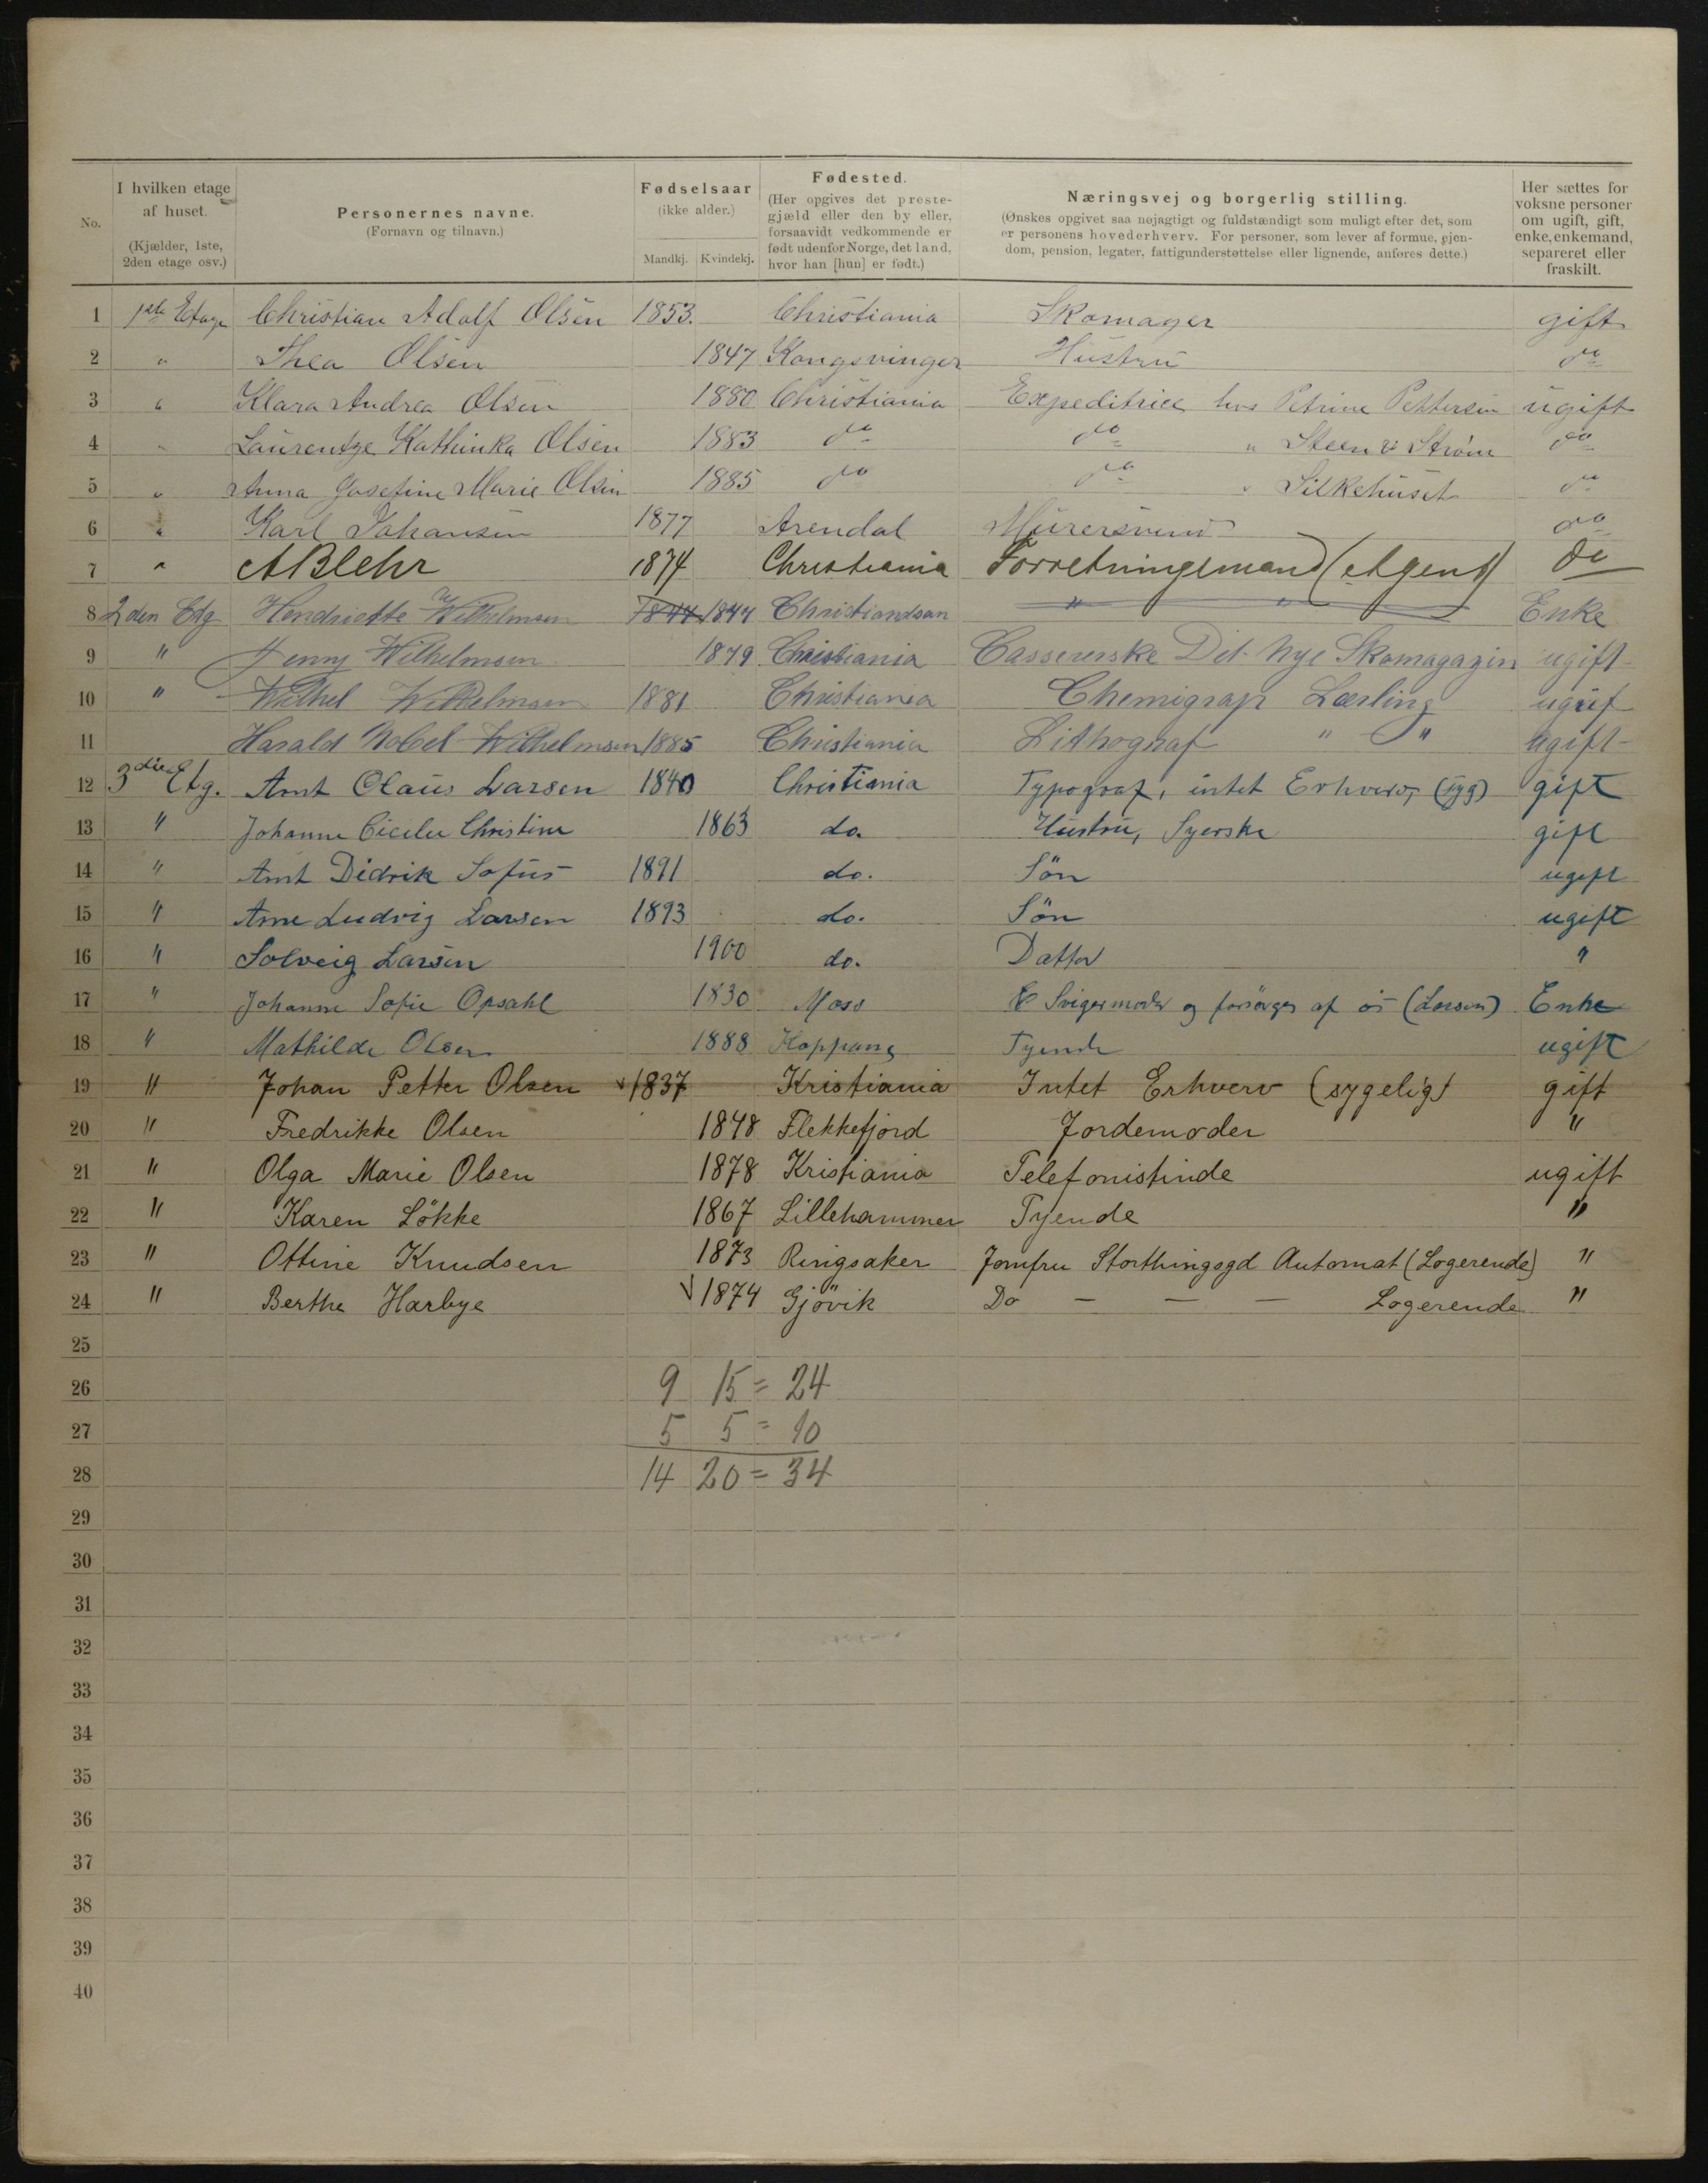 No.
I hvilken etage af huset. (Kjælder, 1ste, 2den etage osv.)
Personernes navne. (Fornavn og tilnavn.)
Fødselsaar (ikke alder.) Mandkj. Kvindekj.
Fødested. (Her opgives det prestegjæld eller den by eller, forsaavidt vedkommende er født udenfor Norge, det land, hvor han [hun] er født.)
Næringsvej og borgerlig stilling. (Ønskes opgivet saa nøjagtigt og fuldstændigt som muligt efter det, som er personens hovederhverv. For personer, som lever af formue, ejendom, pension, legater, fattigunderstøttelse eller lignende, anføres dette.)
Her sættes for voksne personer om ugift, gift, enke, enkemand, separeret eller fraskilt.
1 1ste Etage Christian Adolf Olsen 1853. Christiania Skomager gift
2 " Thea Olsen 1847 Kongsvinger Hustru do
3 " Klara Andrea Olsen 1880 Christiania Expeditrice hos Petrine Pettersen ugift
4 " Laurentze Kathinka Olsen 1883 do do " Steen & Strøm do
5 " Anna Josefine Marie Olsen 1885 do do " Silkehuset do
6 " Karl Johansen 1877 Arendal Murersvend do
7 " A Blehr 1874 Christiania Forretningsmand (Agent) do
8 2den Etg Hendriette Wilhelmsen 1844 1844 Christiandsan " " Enke
9 " Jenny Wilhelmsen 1879 Christiania Cassererske Det Nye Skomagazin ugift
10 " Wilhel Wilhelmsen 1881 Christiania Chemigrap Lærling ugift
11 Harald Nobel Wilhelmsen 1885 Christiania Lithograf " " ugift
12 3die Etg. Amt Olaus Larsen 1840 Christiania Typograf, intet Erhverv, (syg) gift
13 " Johanne Cicilie Christine 1863 do. Hustru, Syerske gift
14 " Amt Didrik Sofus 1891 do. Sön ugift
15 " Arne Ludvig Larsen 1893 do. Sön ugift
16 " Solveig Larsen 1900 do. Datter "
17 " Johanne Sofie Opsahl 1830 Moss Svigermoder og forsörges af os (Larsen) Enke
18 " Mathilde Olsen 1888 Koppang Tyende ugift
19 " Johan Petter Olsen 1837 Kristiania Intet Erhverv (sygelig) gift
20 " Fredrikke Olsen 1848 Flekkefjord Jordemoder "
21 " Olga Marie Olsen 1878 Kristiania Telefonistinde ugift
22 " Karen Lökke 1867 Lillehammer Tyende "
23 " Ottine Knudsen 1873 Ringsaker Jomfru Storthingsgd Automat (Logerende) "
24 " Berthe Harbye 1874 Gjövik Do — — — Logerende "
25
26 9 15 = 24
27 5 5 = 10
28 14 20 = 34
29
30
31
32
33
34
35
36
37
38
39
40